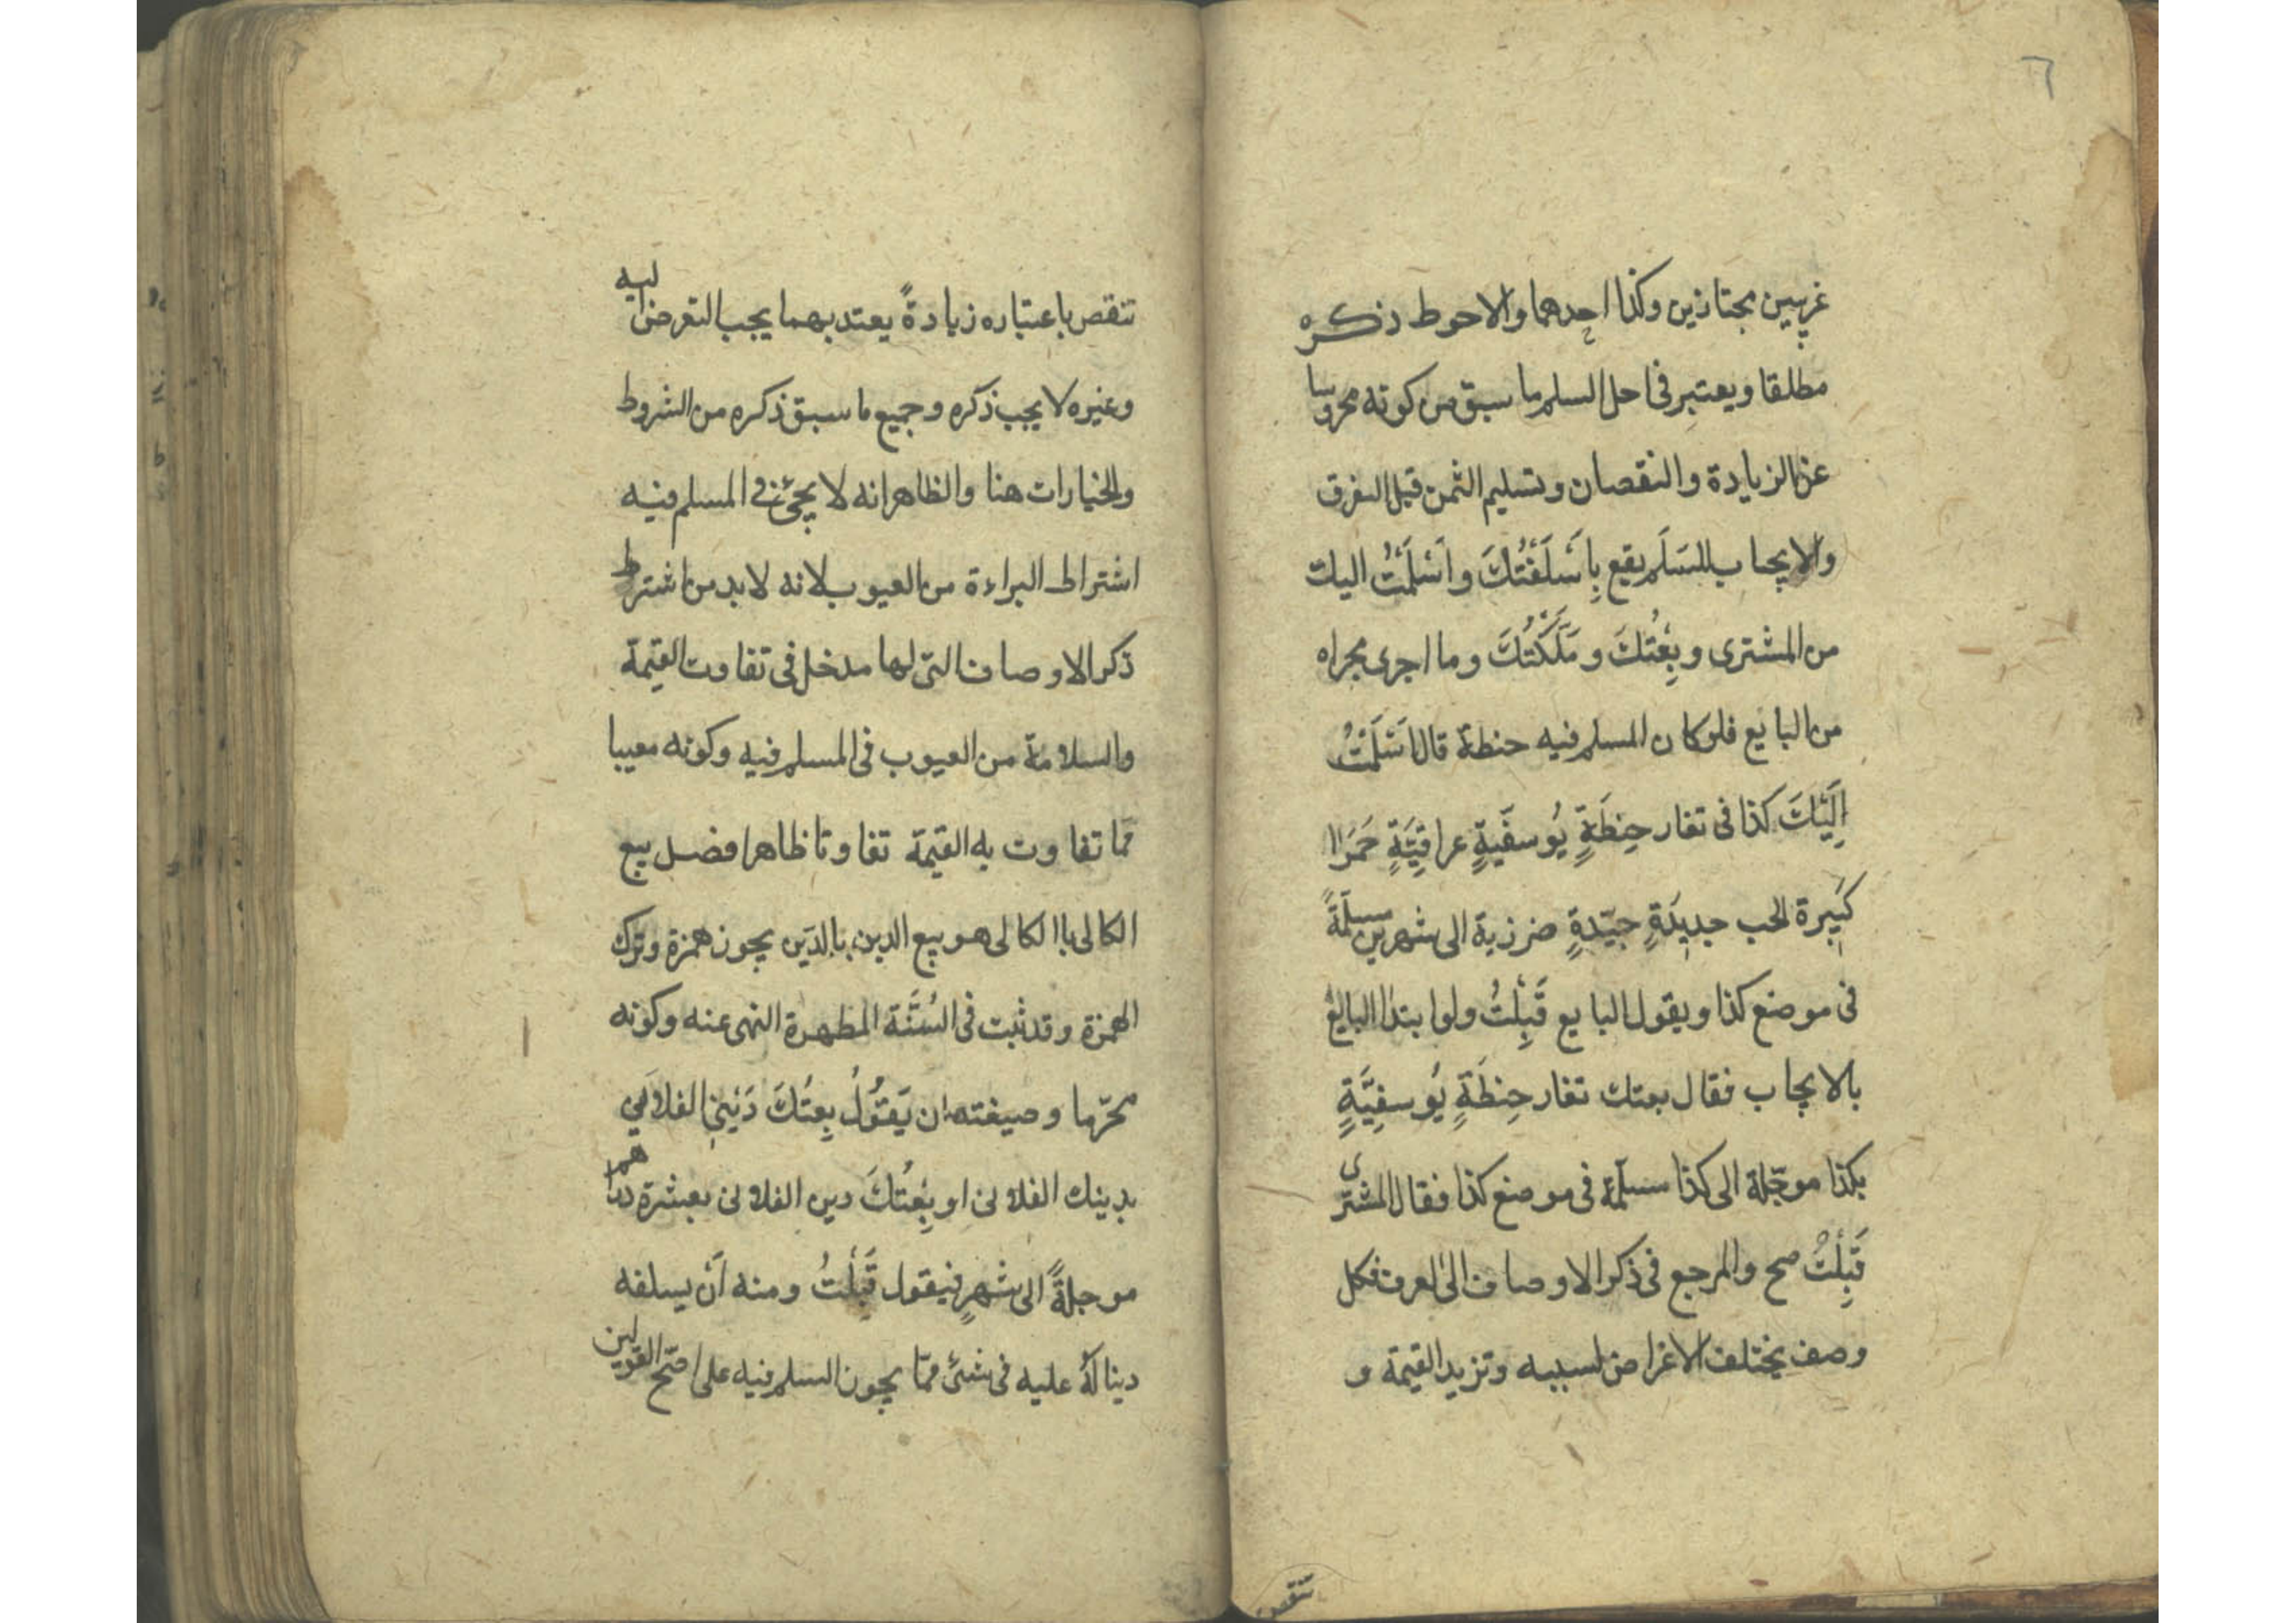 ٦
غريبين مجتازين وكذا احدهما والاحوط ذكره
مطلقا ويعتبر في اجل السلم ما سبق من كونه محروسا
عن الزيادة والنقصان وتسليم الثمن قبل التفرق
والايجاب للسَلَم يقع بِاَسْلَفْتُكَ واَسْلَمْتُ اليك
من المشترى وبِعْتُكَ ومَلَّكْتُكَ وما اجرى مجراه
من البايع فلو كان المسلم فيه حنطة قال اَسْلَمْتُ
اِلَيْكَ كذا في تغار حِنطَةٍ يُوسفَيَّةٍ عراقِيَّةٍ حَمَرَاا
كَبِيرة الحب جديدَةٍ جيّدةٍ ضرزية الى شهرين مسلّمَةً
فى موضع كذا ويقول البايع قَبِلْتُ ولو ابتدا البايع
بالايجاب فقال بعتك تغار حِنطَةٍ يُوسفِيَّةٍ
بكذا موجّلة الى كذا مسلّمة فى موضع كذا فقال المشترى
قَبِلْتُ صح والمرجع فى ذكر الاوصاف الى العرف فكل
وصف يختلف الاغراض لسببه وتزيد القيمة و
تنقص
تنقص باعتباره زيادةً يعتد بهما يجب التعرض اليه
وغيره لا يجب ذكره وجميع ما سبق ذكره من الشروط
والخيارات هنا والظاهر انه لا يجئ في المسلم فيه
اشتراط البراءة من العيوب لانه لا بد من اشتراط
ذكر الاوصاف التى لها مدخل فى تفاوت القيمة
والسلامة من العيوب فى المسلم فيه وكونه معيبا
مّما تفاوت به القيمة تفاوتا ظاهرا فصل بيع
الكالى باالكالى هو بيع الدين بالدَين يجوز همزة وترك
الهمزة وقد ثبت فى السُنَّة المطهرة النهى عنه وكونه
محرّما وصيغته ان يَقُولُ بِعتُكَ دَيْنِي الفلانى
بدينك الفلانى او بِعْتُكَ دين الفلانى بعشرة دراهم
موجلةً الى شهرٍ فيقول قَبِلْتُ ومنه اَنْ يسلفه
دينا لَهُ عليه فى شئ ممّا يجوز السلم فيه على اصّح القولين